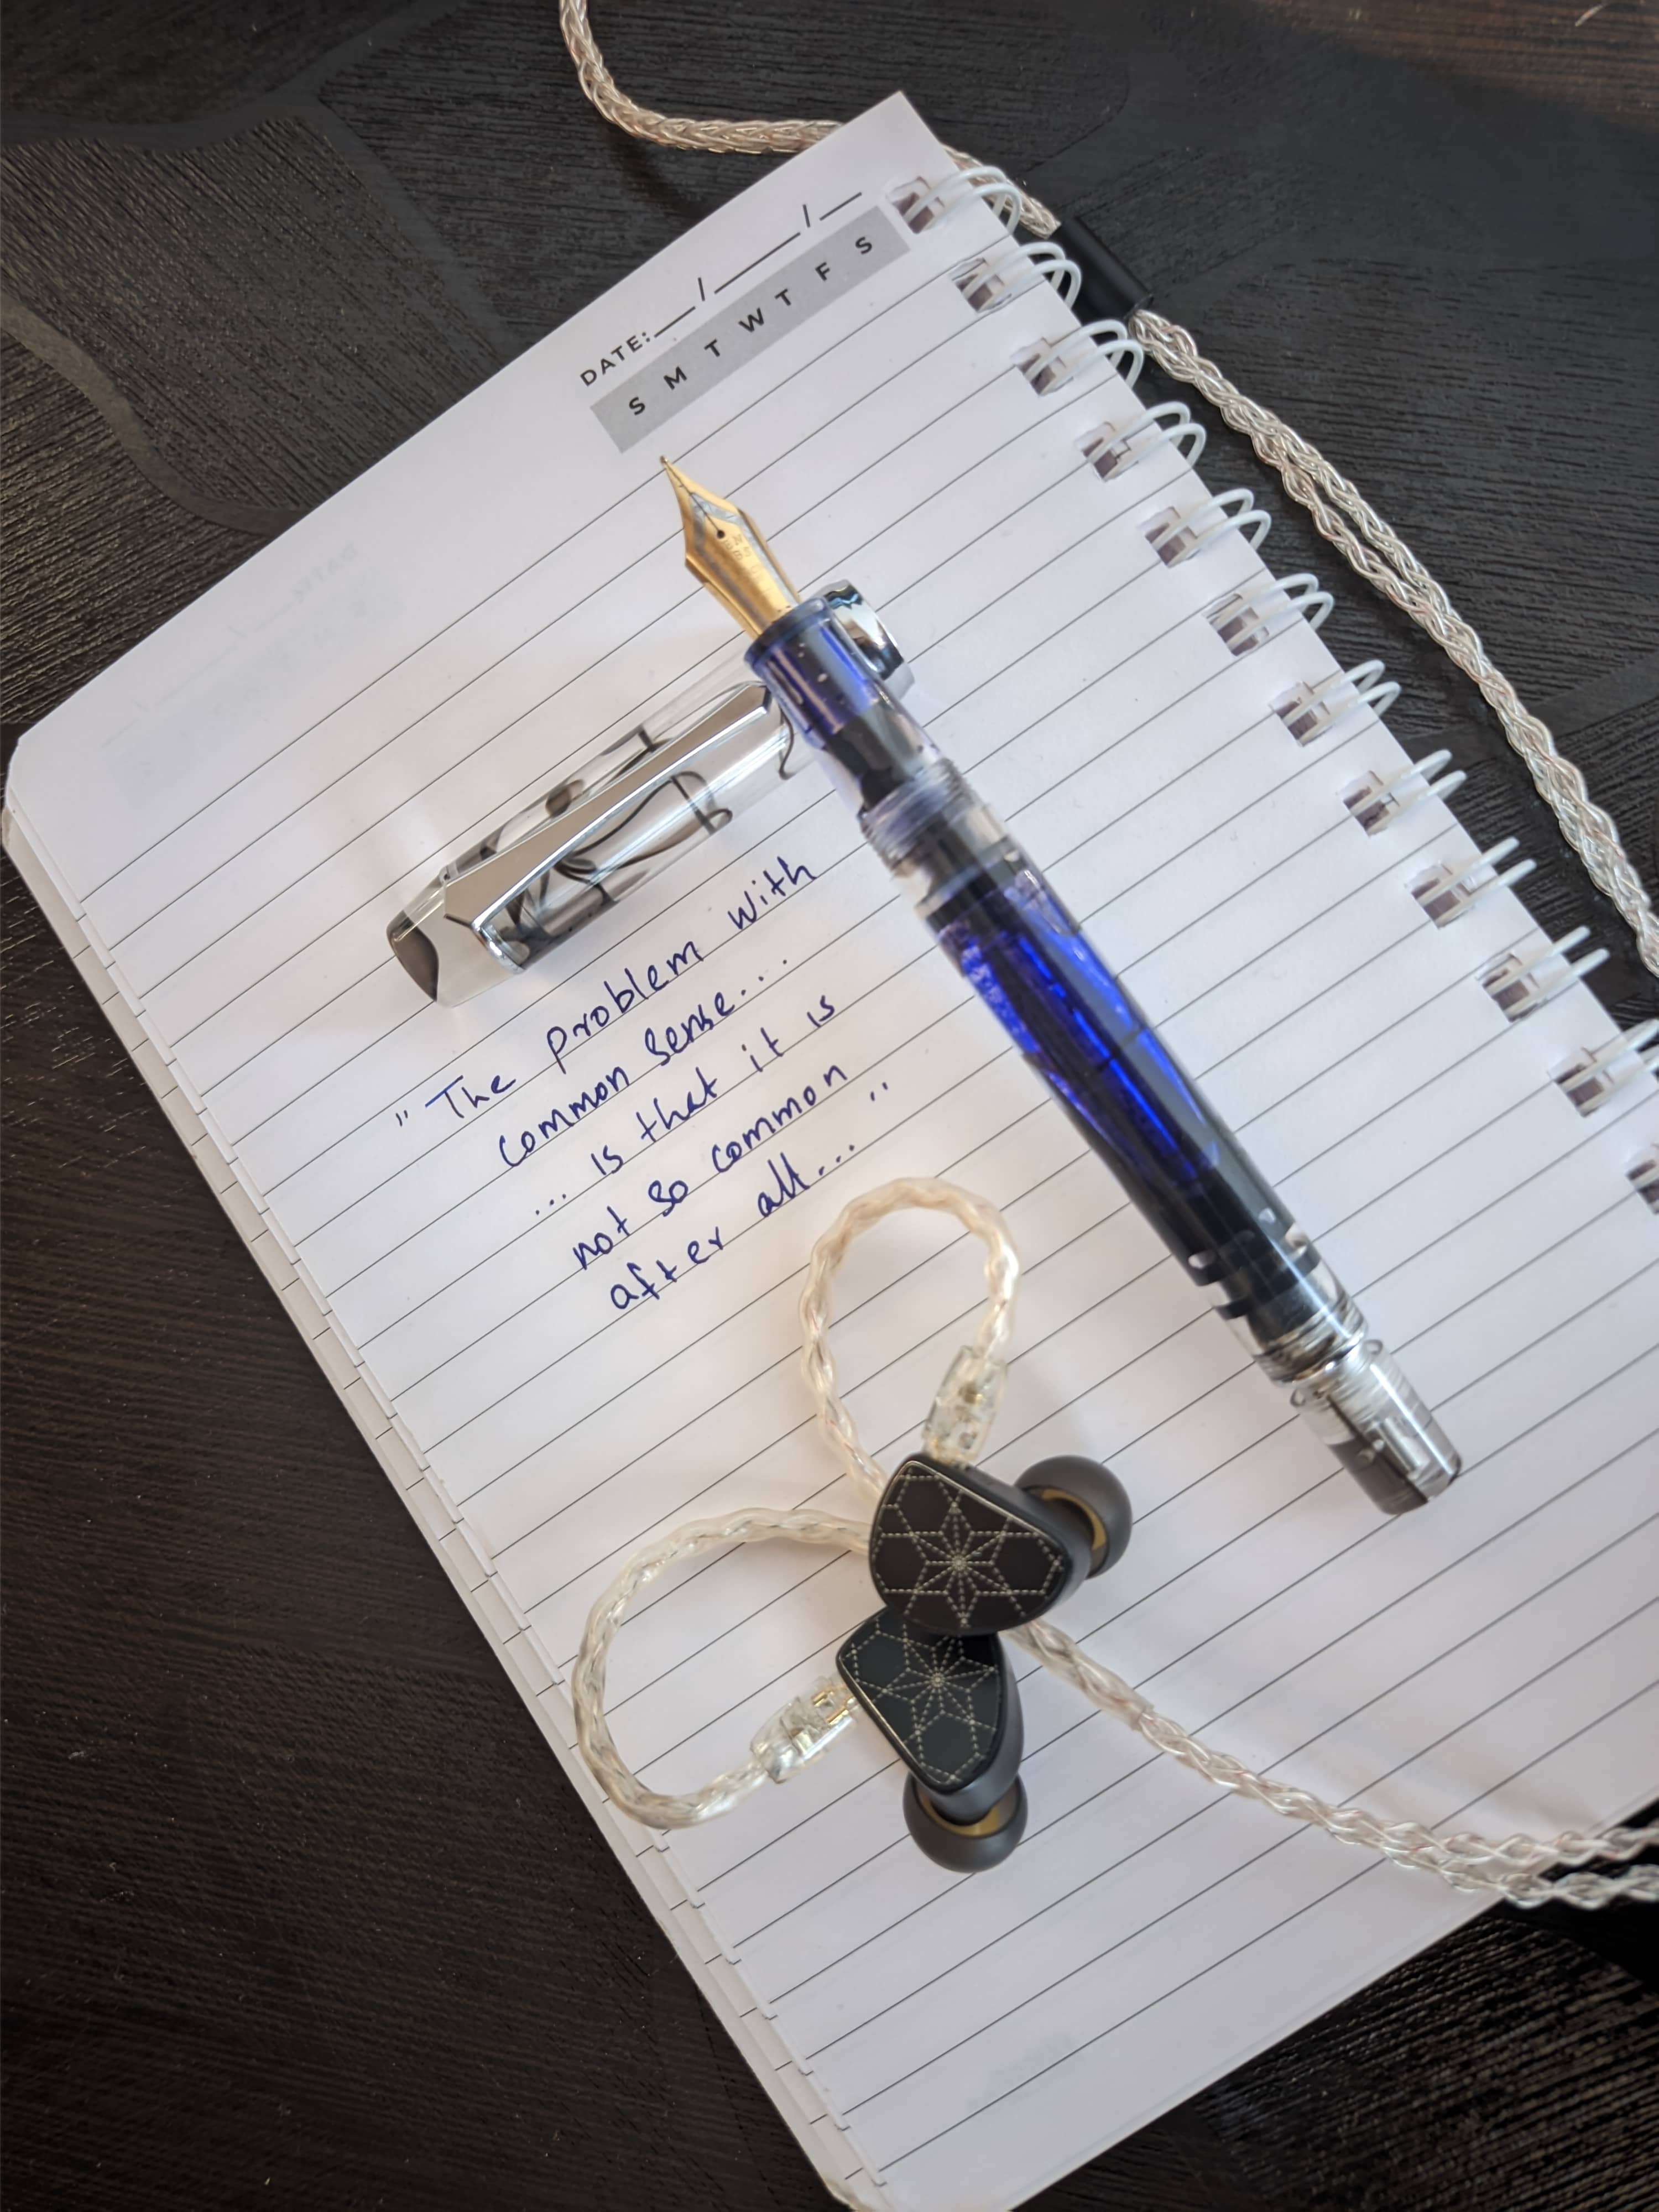 DATE:__/____/__
S M T W T F S
"The problem with
common sense...
... is that it is
not so common
after all... "